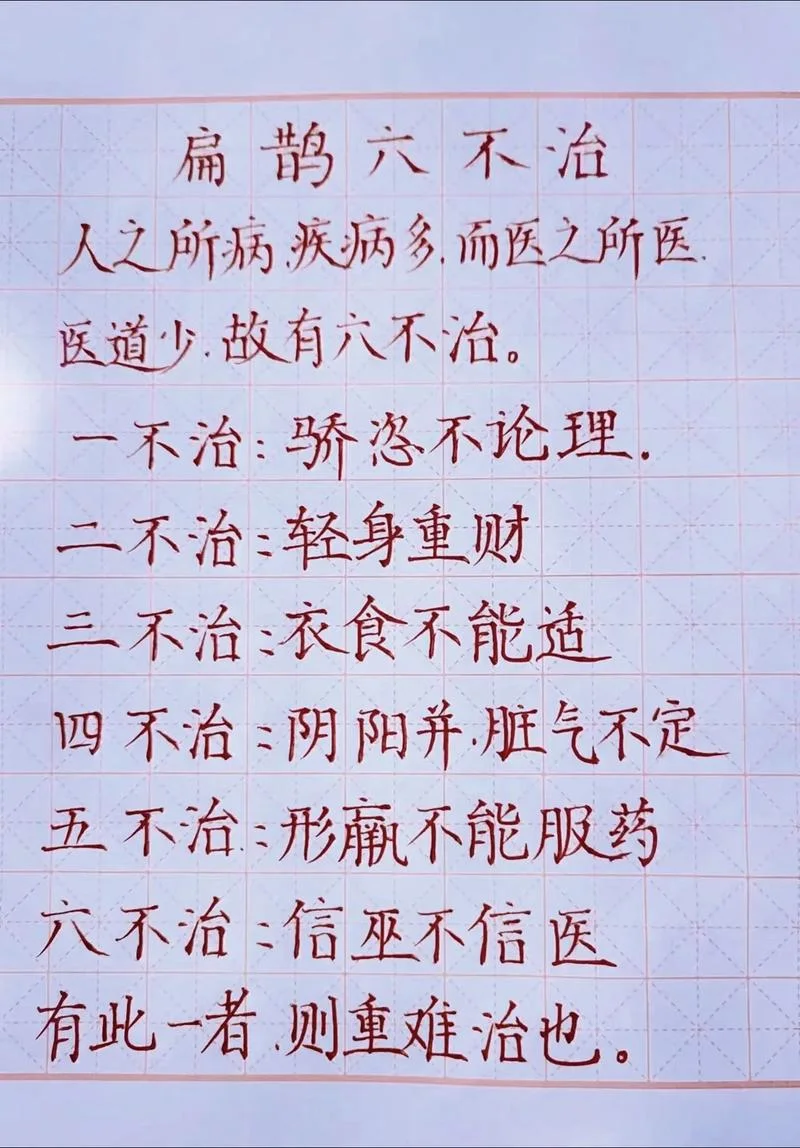 扁鹊六不治
人之所病.疾病多.而医之所医.
医道少.故有六不治。
一不治:骄恣不论理.
二不治:轻身重财
三不治:衣食不能适
四不治:阴阳并.脏气不定
五不治:形羸不能服药
六不治:信巫不信医
有此一者.则重难治也。